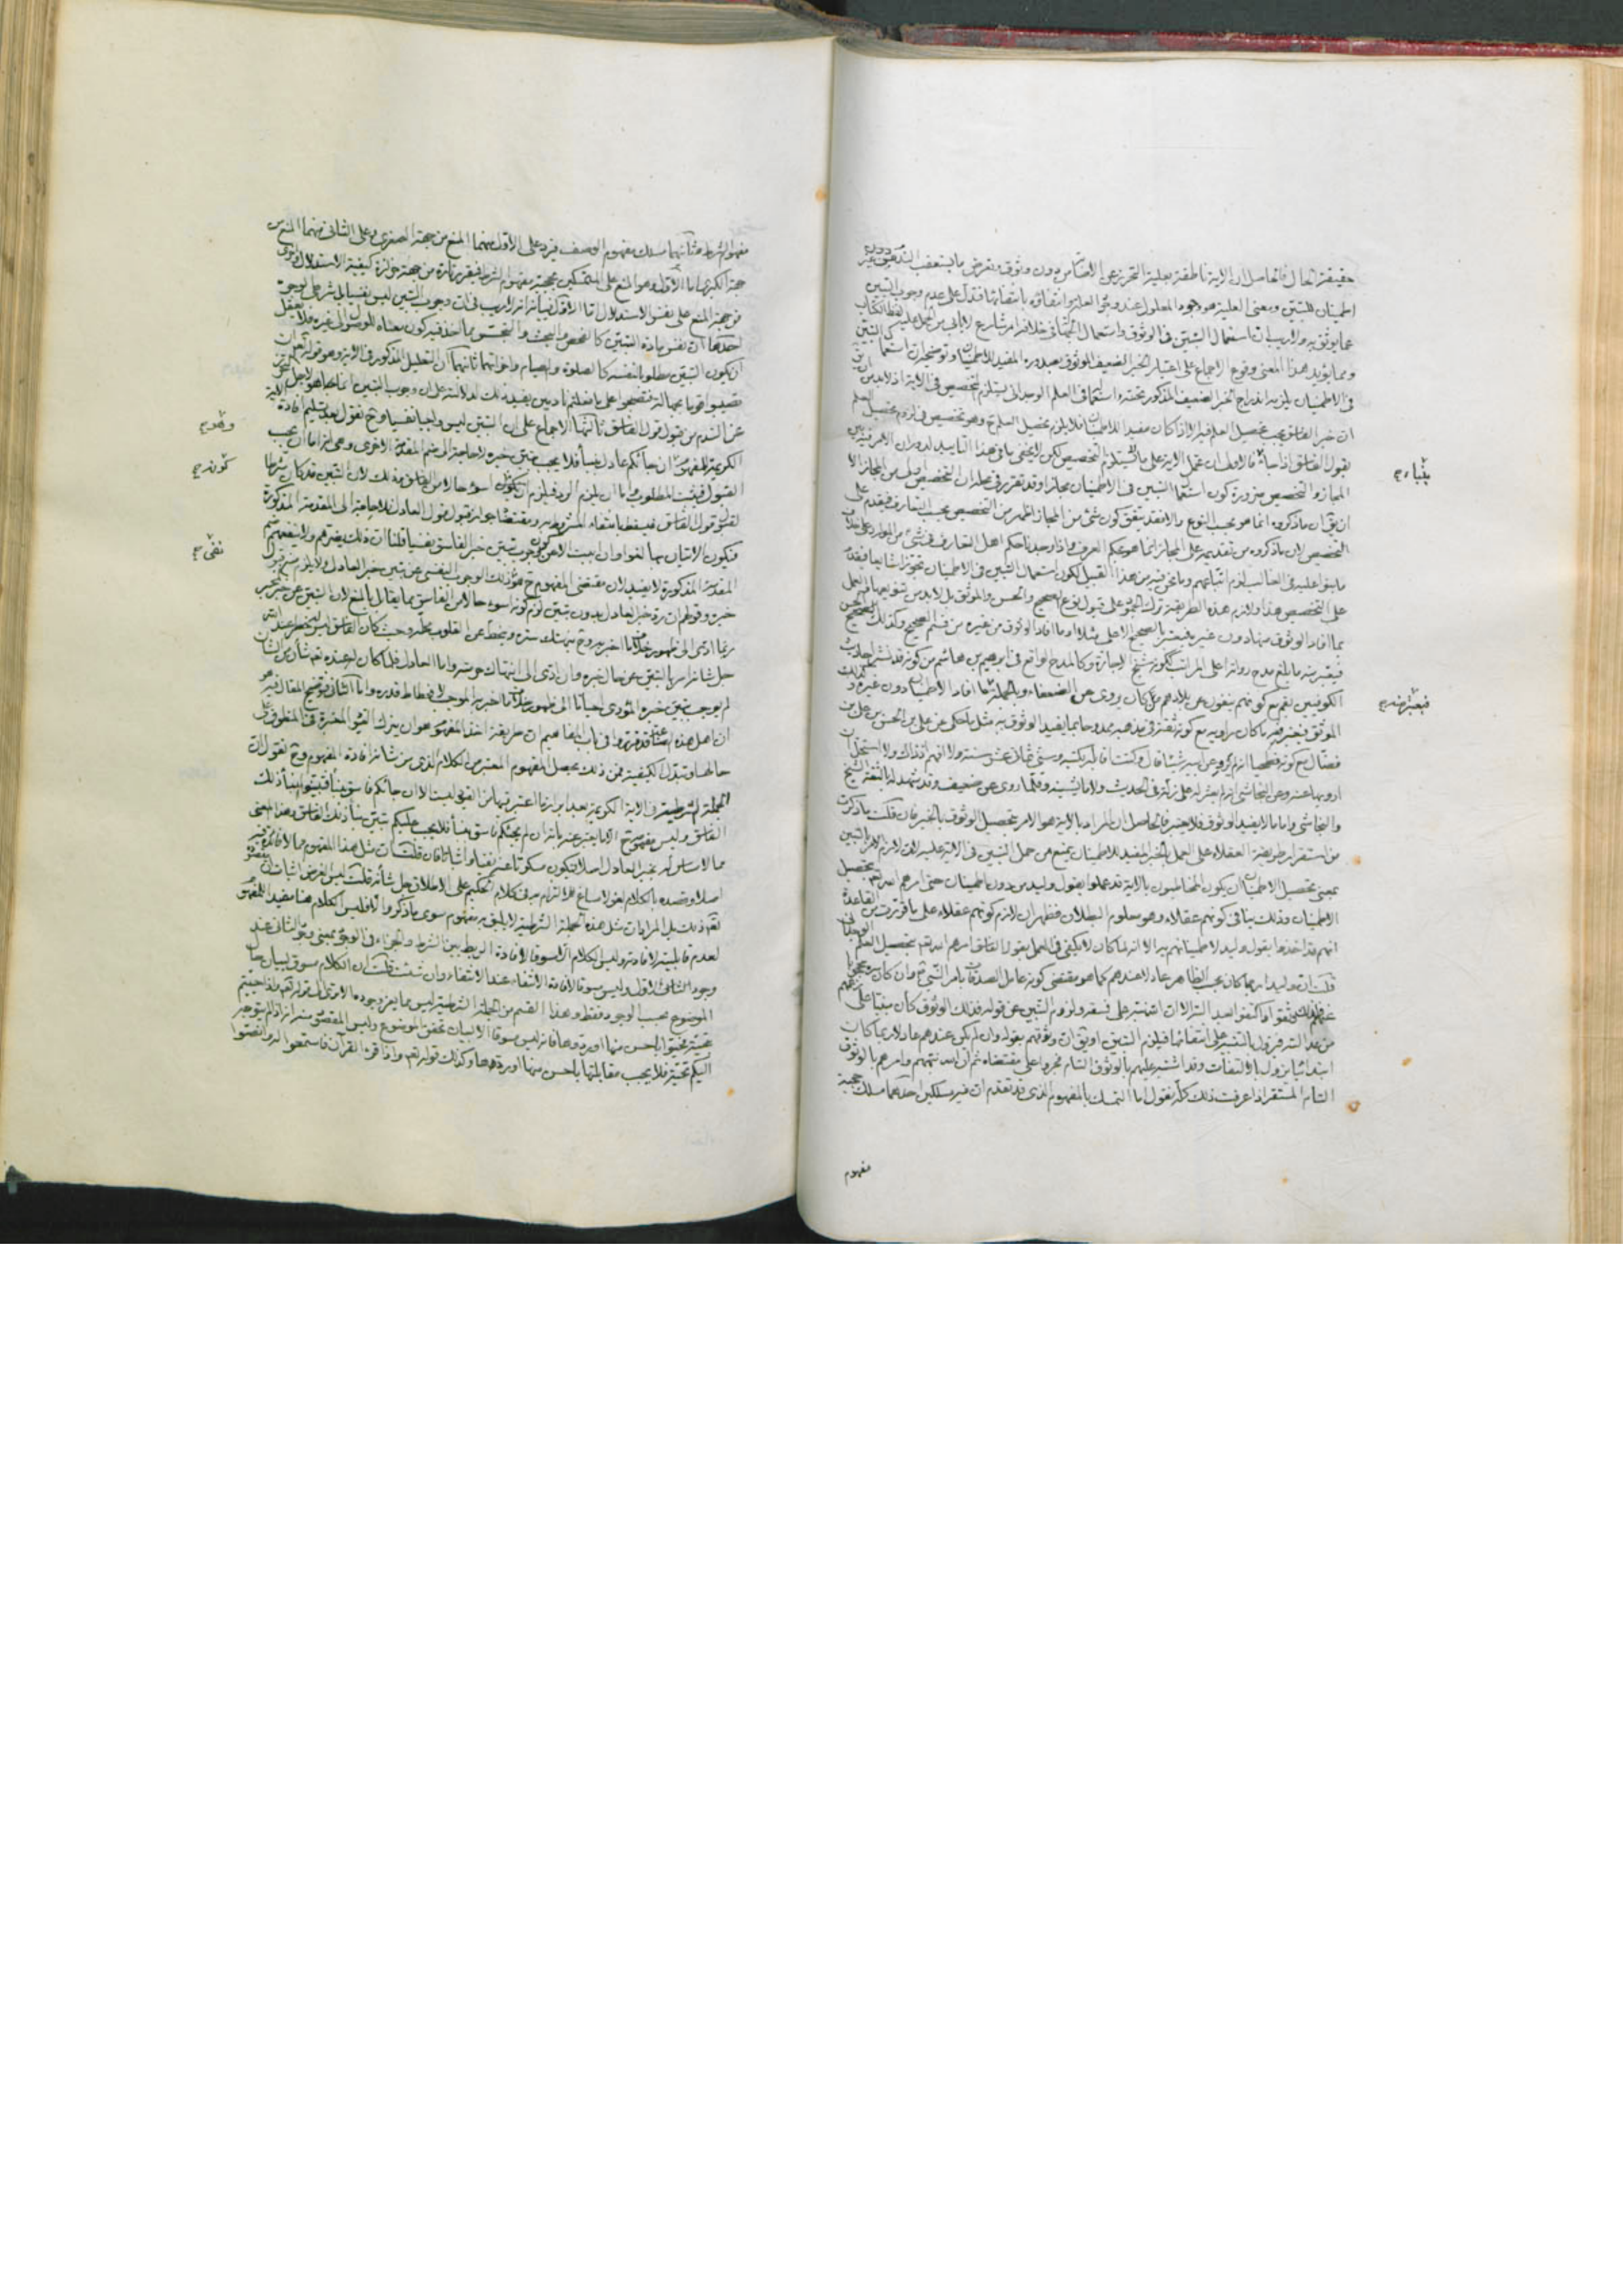 حقيقة الحال فالحاصل ان الاية ناطقة بعلية التحرز عن الاصابة من دون وثوق وتعرض ما يستعقب الندم من دون
اطمينان للتبين ومعنى العلية هو وجود المعلول عند وجود العلة وانتفاؤه بانتفائها فتدل على عدم وجوب التبين
عما يوثق به ولا ريب ان استعمال التبين في الوثوق واستعمال الجهالة في خلافه امر شايع
ومما يؤيد هذا المعنى وقوع الاجماع على اعتبار الخبر الضعيف الموثوق بصدوره المفيد للاطمينان وتوضيحه ان استعمال التبين
في الاطمينان يلزمه اندراج الخبر الضعيف المذكور تحته واستعماله في العلم الوجداني يستلزم التخصيص في الاية اذ لا بد من
ان خبر الفاسق يجب تحصيل العلم فيه الا اذا كان مفيدا للاطمينان فلا يلزم تحصيل العلم ح وهو تخصيص في لزوم تحصيل العلم
بقول الفاسق اذا جاء فالاولى ان تحمل الاية على ما لا يستلزم التخصيص لكن لا يخفى ما في هذا التاييد لدوران الامر فيه بين
المجاز والتخصيص ضرورة كون استعمال التبين في الاطمينان مجازا وقد تقرر في محله ان التخصيص اولى من المجاز الا
ان يق ان ما ذكروه انما هو بحسب النوع والا فقد يتفق كون شئ من المجاز اظهر من التخصيص بحسب التعارف فيقدم على
التخصيص لان ما ذكروه من تقديمه على المجاز انما هو بحكم العرف واذا وجدنا حكم اهل التعارف في شئ من الموارد على خلاف
ما بنوا عليه في الغالب لزم اتباعهم وما نحن فيه من هذا القبيل لكون استعمال التبين في الاطمينان تجوزا شايعا فيقدم
على التخصيص هذا ولازم هذه الطريقة ترك الجمود على قبول نوع الصحيح والحسن والموثق بل لا بد من تنويعها فيعمل
بما افاد الوثوق منها دون غيره فيعتبر بالصحيح الاعلى مثلا او ما افاد الوثوق من غيره من قسم الصحيح وكذلك الحسن
فيعتبر منه ما بلغ مدح رواته اعلى المراتب ككونه شيخ الاجازة وكالمدح الواقع في ابراهيم بن هاشم من كونه قد نشر احاديث
الكوفيين بقم مع كونهم ينفون عن بلادهم من كان يروي عن الضعفاء وبالجملة ما افاد الاطمينان دون غيره وكذلك
الموثق فيعتبر فيه ما كان راويه مع كونه ثقة في مذهبه ممدوحا بما يفيد الوثوق به مثل ما حكى عن علي بن الحسن بن علي بن
فضال مع كونه فطحيا انه لم يرو عن ابيه شيئا قال وكنت اقابله بكتبه وسني ثمان عشر سنة ولا افهم اذ ذاك ولا استحل ان
ارويها عنه وعن النجاشي انه لم يعثر له على زلة في الحديث ولا ما يشينه وقلما روى عن ضعيف وقد شهد له بالثقة الشيخ
والنجاشي واما ما لا يفيد الوثوق فلا يعتبر فالحاصل ان المراد بالاية هو الامر بتحصيل الوثوق بالخبر فان قلت ما ذكرت
من استقرار طريقة العقلاء على العمل بالخبر المفيد للاطمينان يمنع من حمل التبين في الاية عليه لان لازم الامر بالتبين
بمعنى تحصيل الاطمينان ان يكون المخاطبون بالاية قد عملوا بقول وليد من دون اطمينان حتى امرهم الله تع بتحصيل
الاطمينان وذلك ينافي كونهم عقلاء وهو معلوم البطلان فظهر ان لازم كونهم عقلاء على ما قررت من القاعدة
انهم قد اخذوا بقول وليد لاطمينانهم به الا انه لما كان لا يكفي في العمل بقول الفاسق امرهم الله تع بتحصيل العلم
قلت ان وليد انما كان بحسب الظاهر عادلا عندهم كما هو مقتضى كونه عامل الصدقات بامر النبي ص وان كان
من عدا الستر فيزول بالتنبيه على انتفائها فيلزم التبين او يق ان وثوقهم بقوله وان لم يكن عندهم عادلا ربما كان
ابتدائيا يزول بالالتفات وقد اشتبه عليهم بالوثوق التام فجروا على مقتضاه ثم ان الله نبههم وامرهم بالوثوق
التام المستقر اذا عرفت ذلك كله نقول اما التمسك بالمفهوم الذي قد تقدم ان فيه مسلكين احدهما مسلك حجية
بنباء صح
فيعتبر منه صح
مفهوم
مفهوم الشرط وثانيهما مسلك مفهوم الوصف فيرد على الاول منهما المنع من جهة الصغرى وعلى الثاني منهما المنع من
جهة الكبرى اما الاول وهو المنع على المتمسكين بحجية مفهوم الشرط فيقرر تارة من جهة حزازة كيفية الاستدلال واخرى
من جهة المنع على نفس الاستدلال اما الاول فبيانه انه لا ريب في ان وجوب التبين ليس نفسيا بل شرطي لوجوه
احدها ان نفس مادة التبين كالفحص والبحث والتجسس مما اخذ فيه كون معناه للوصول الى غيره فلا يعقل
ان يكون التبين مطلوبا لنفسه كالصلوة والصيام واخواتهما ثانيها ان التعليل المذكور في الاية وهو قوله تع ان
تصيبوا قوما بجهالة فتصبحوا على ما فعلتم نادمين يفيد ذلك لدلالته على ان وجوب التبين انما هو لاجل التحرز
عن الندم من قبول قول الفاسق ثالثها الاجماع على ان التبين ليس واجبا نفسيا وح نقول بعد تسليم افادة الاية
الكريمة للمفهوم ان جائكم عادل بنبأ فلا يجب تبين خبره لا حاجة الى ضم المقدمة الاخرى وهي انه اما ان يجب
القبول فيثبت المطلوب واما ان يلزم الرد فيلزم ان يكون اسوء حالا من الفاسق وذلك لان التبين قد كان شرطا
لقبول قول الفاسق فيسقط بانتفاء المشروط به ومقتضاه جواز قبول قول العادل فلا حاجة الى المقدمة المذكورة
فيكون الاتيان بها لغوا وان ابيت الا عن كون وجوب تبين خبر الفاسق نفسيا قلنا ان ذلك يضرهم ولا ينفعهم ضم
المقدمة المذكورة لا يفيد لان مقتضى المفهوم ح هو ذلك الوجوب النفسي عن تبين خبر العادل ولا يلزم منه قبول
خبره وقولهم ان رد خبر العادل بدون تبين لازم كونه اسوء حالا من الفاسق مما يقابل بالمنع لان التبين عن خبر المخبر
ربما ادى الى ظهور خلاف ما اخبر به وح ينهتك ستره وينحط عن القلوب محله وحيث كان الفاسق ليس له خطر عند الله
جل شانه امر بالتبين عن حال خبره وان ادى الى انتهاك حرمته واما العادل فلما كان له عنده تع شأن من الشان
لم يوجب تبين خبره المؤدي احيانا الى ظهور خلاف ما اخبر به الموجب لانحطاط قدره واما الثاني فتوضيح المقال فيه هو
ان اهل هذه الصناعة قد قرروا في باب المفاهيم ان طريقة اخذ المفهوم هو ان يترك القيود المعتبرة في المنطوق على
حالها وتبدل الكيفية فمن ذلك يحصل المفهوم المعتبر من الكلام الذي من شانه افادة المفهوم وح نقول ان
الجملة الشرطية في الاية الكريمة بعد ابراز ما اعتبر فيها من القيود ليست الا ان جائكم فاسق بنبأ فتبينوا نبأ ذلك
الفاسق وليس مفهومه ح الا ما يعبر عنه بانه ان لم يجئكم فاسق بنبأ فلا يجب عليكم تبين نبأ ذلك الفاسق وهذا المعنى
مما لا مساس له بخبر العادل اصلا فيكون مسكوتا عنه نفيا واثباتا فان قلت ان مثل هذا المفهوم مما لا فائدة فيه
اصلا وقصده بالكلام لغو لا مساغ للالتزام به في كلام الحكيم على الاطلاق جل شأنه قلت ليس الغرض اثبات ان المقصود
لعدم قابليته لافادته وليس الكلام الا مسوقا لافادة الربط بين الشرط والجزاء في الوجود بمعنى وجود الثاني عند
وجود الاول وليس مسوقا لافادة الانتفاء عند الانتفاء وان شئت قلت ان الكلام مسوق لبيان حال
الموضوع بحسب الوجود فقط وهذا القسم من الجملة الشرطية ليس مما يعز وجوده الا ترى الى قوله تع واذا حييتم
بتحية فحيوا باحسن منها او ردوها فانه ليس مسوقا الا لبيان تحقق الموضوع وليس المقصود منه انه اذا لم يتوجه
اليكم تحية فلا يجب مقابلتها باحسن منها او ردها وكذلك قوله تع واذا قرء القرآن فاستمعوا له وانصتوا
كونه صح
نفى صح